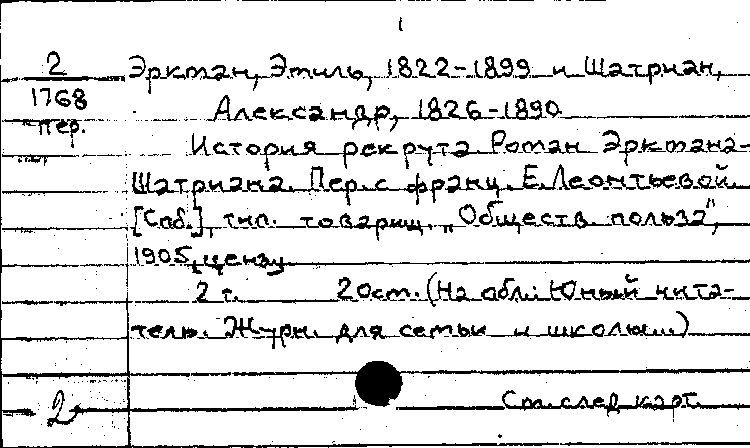 1
2
1768
пер.
Эркман, Эмиль, 1822-1899 и Шатриан,
Александр, 1826-1890
История рекрута. Роман Эркмана-
Шатриана. Пер. с франц. Е. Леонтьевой.
[Спб.], тип. товарищ. „Обществ. польза",
1905, ценз.
2 т. 20 см. (На обл.: Юный чита-
тель. Журн. для семьи и школы...)
См. след. карт.
2